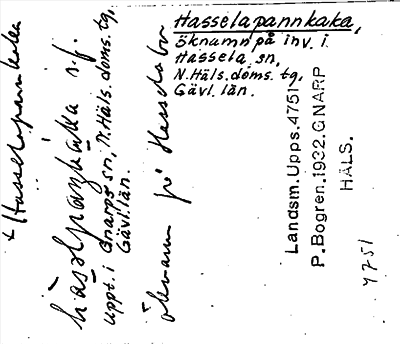 Hasselapannkaka,
öknamn på inv. i
Hassela sn,
N. Häls. doms. tg,
Gävl. län.
+ Hasselapannkaka
håsəlpanjkåka s.f.
uppt. i Gnarps sn, N. Häls. doms. tg,
Gävl. län.
öknamn på Hasselabor
Landsm. Upps. 4751
P. Bogren. 1932. GNARP
HÄLS.
4751